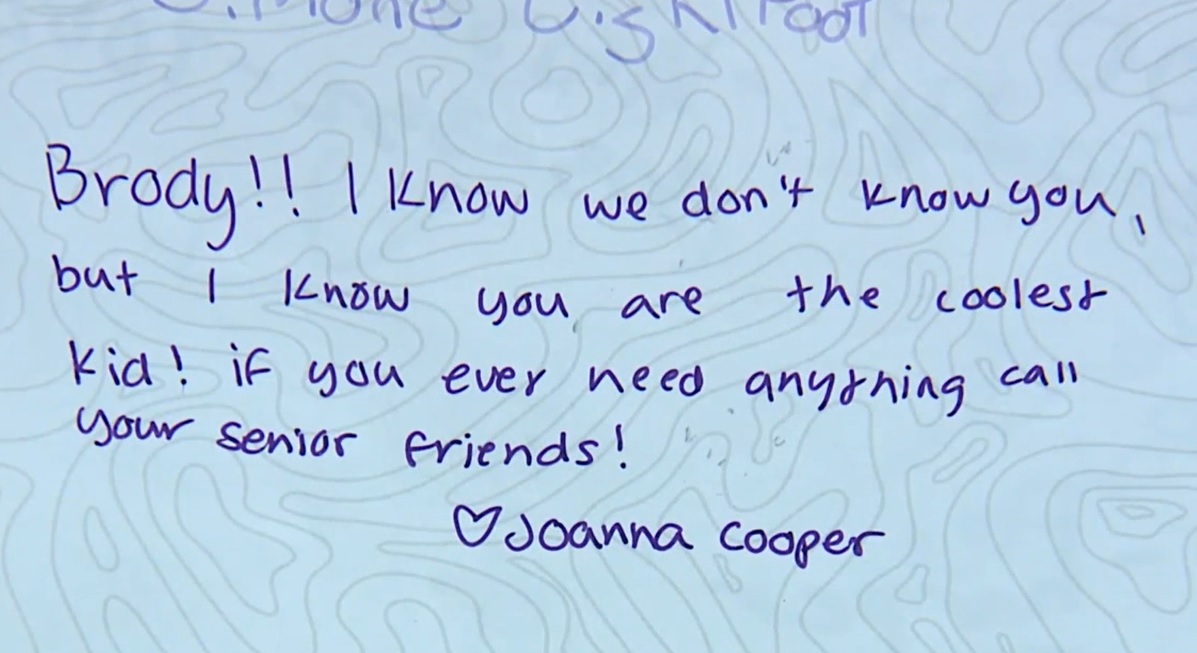 Brody!! I know we don't know you,
but I know you are the coolest
kid! if you ever need anything call
your senior friends!
♡Joanna Cooper